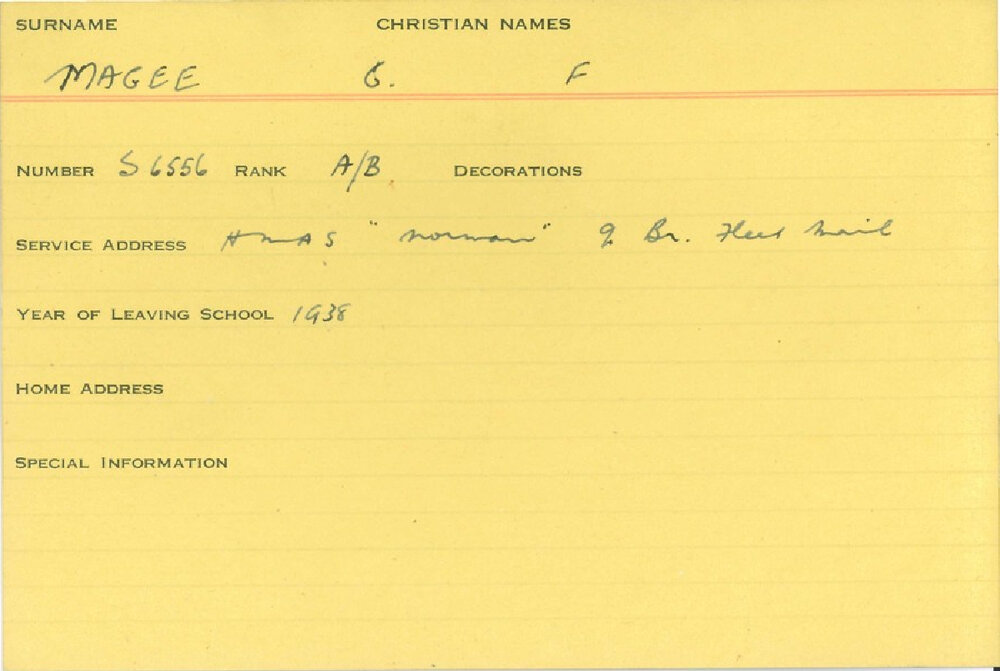 SURNAME CHRISTIAN NAMES
MAGEE G. F
NUMBER S 6556 RANK A/B DECORATIONS
SERVICE ADDRESS HMAS "Norman" Br. Fleet Mail
YEAR OF LEAVING SCHOOL 1938
HOME ADDRESS
SPECIAL INFORMATION